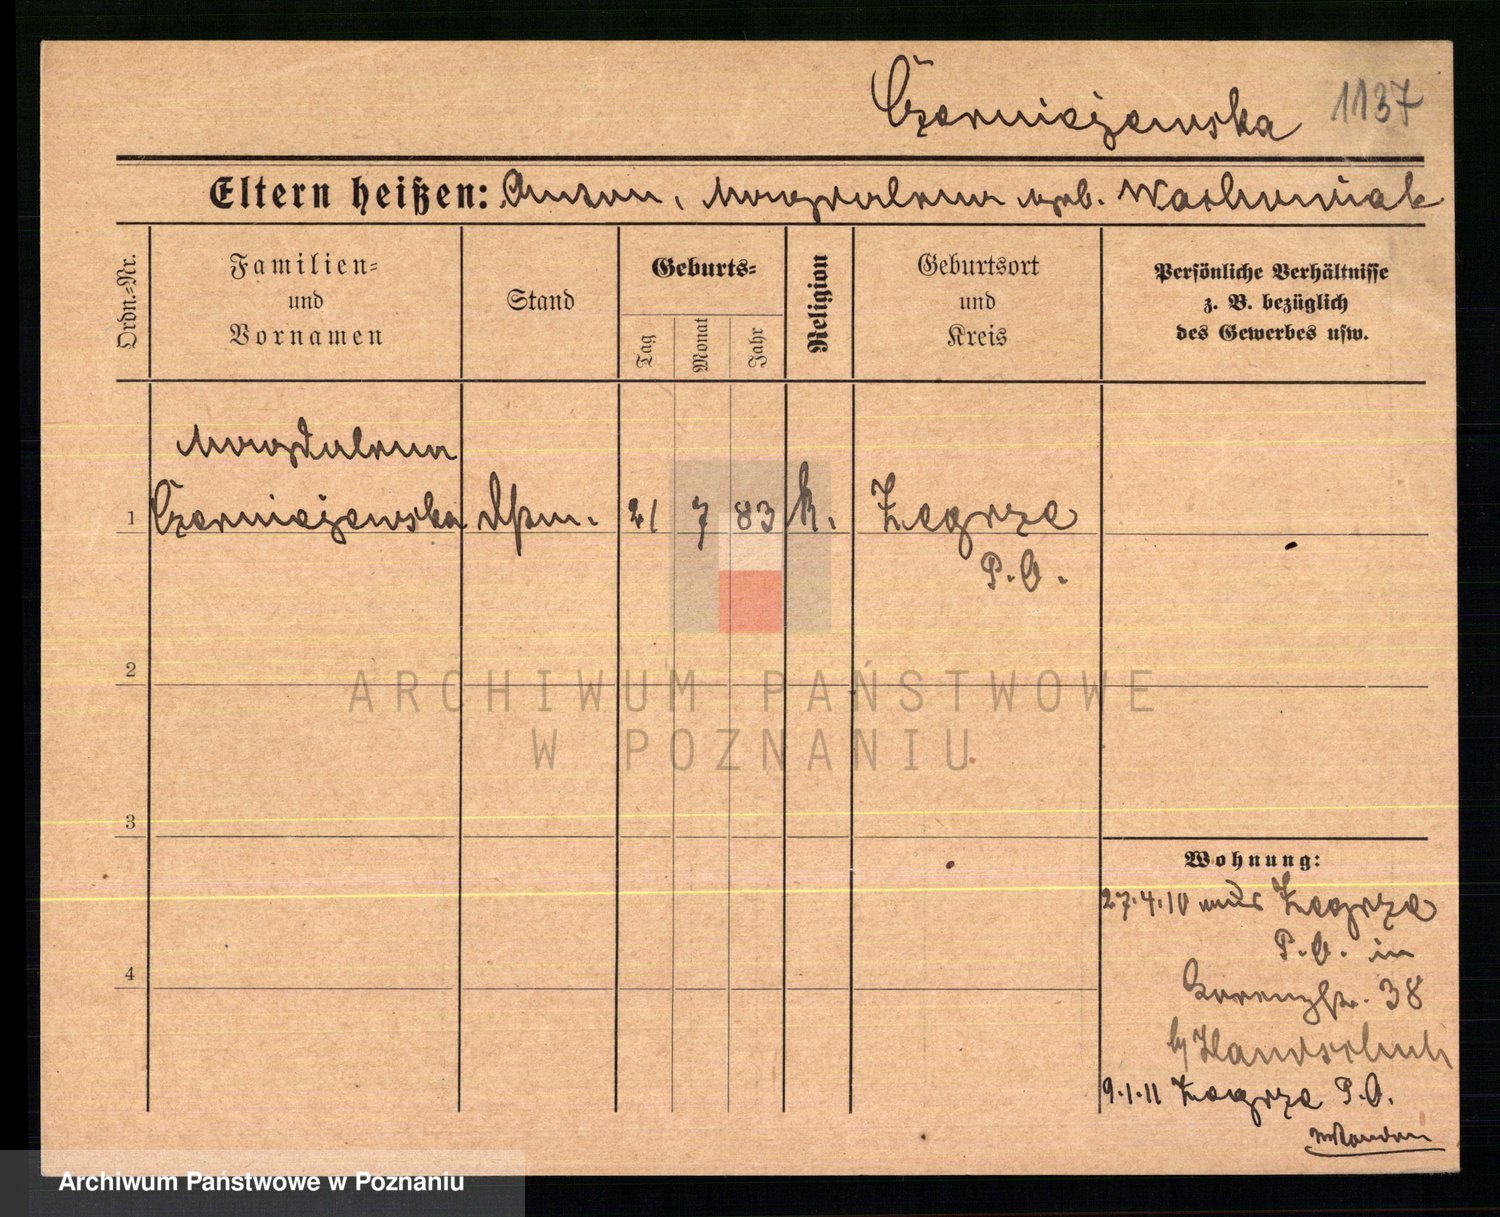 Czerniejewska 1137
Eltern heißen: Anton, Magdalena geb. Wachowiak
Ordn.-Nr.
Familien-
und
Vornamen
Stand
Geburts-
Tag
Monat
Jahr
Religion
Geburtsort
und
Kreis
Persönliche Verhältnisse
z. B. bezüglich
des Gewerbes usw.
Magdalena
1 Czerniejewska 21 7 83 k. Zegrze
P. O.
2
ARCHIWUM PAŃSTWOWE
W POZNANIU
3
Wohnung:
27.4.10 aus Zegrze
P. O. in
38
by Handschuh
4
9.1.11 Zegrze P. O.
Archiwum Państwowe w Poznaniu